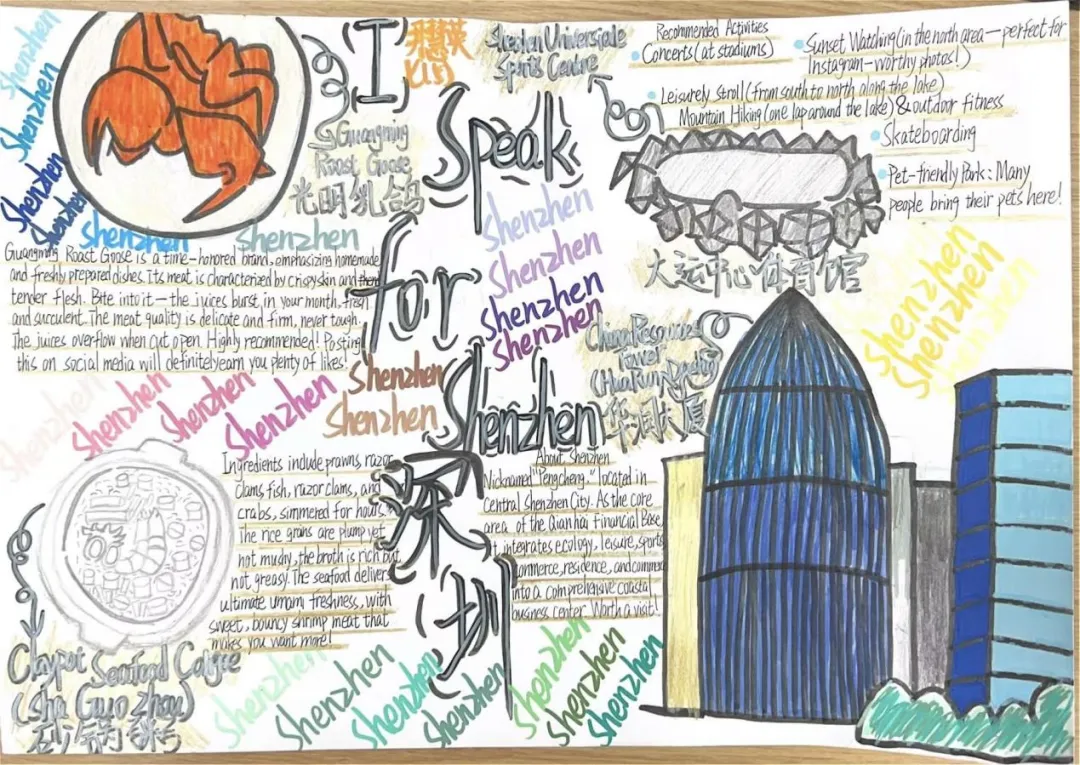 Shenzhen
Shenzhen
Shenzhen
Shenzhen
Shenzhen
Shenzhen
I
Speak
for
Shenzhen
深圳
Guangming
Roast Goose
光明乳鸽
Guangming Roast Goose is a time-honored brand, emphasizing homemade
and freshly prepared dishes. Its meat is characterized by crispy skin and
tender flesh. Bite into it — the juices burst in your month, fresh
and succulent. The meat quality is delicate and firm, never tough.
The juices overflow when cut open. Highly recommended! Posting
this on social media will definitely earn you plenty of likes!
Sports Centre
大运中心体育馆
Recommended Activities
Concerts (at stadiums)
Sunset Watching (in the north area — perfect for
Instagram-worthy photos!)
Leisurely Stroll (from south to north along the lake)
Mountain Hiking (one lap around the lake) & outdoor fitness
Skateboarding
Pet-friendly Park: Many
people bring their pets here!
Shenzhen
Shenzhen
Shenzhen
Shenzhen
Shenzhen
Shenzhen
Shenzhen
China Resources
Tower
华润大厦
Shenzhen
Shenzhen
Shenzhen
Shenzhen
Shenzhen
Shenzhen
Ingredients include prawns, razor
clams, fish, razor clams, and
crabs, simmered for hours.
The rice grains are plump yet
not mushy, the broth is rich but
not greasy. The seafood delivers
ultimate umami freshness, with
sweet, bouncy shrimp meat that
makes you want more!
About Shenzhen
Nicknamed "Pengcheng," located in
Central Shenzhen City. As the core
area of the Qianhai Financial Base,
it integrates ecology, leisure, sports
commerce, residence, and
into a comprehensive coastal
business center. Worth a visit!
Claypot Seafood
(Sha Guo Zhou)
砂锅粥
Shenzhen
Shenzhen
Shenzhen
Shenzhen
Shenzhen
Shenzhen
Shenzhen